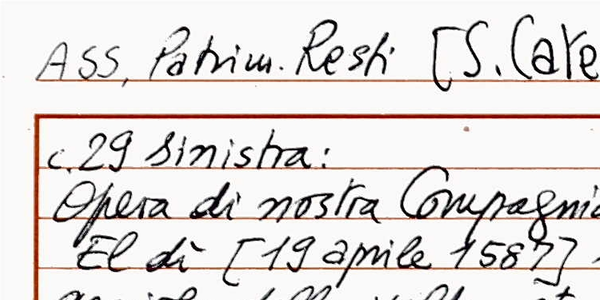 ASS, Patrim. Resti [S. Cate
c. 29 sinistra:
Opera di nostra Compagnia
El dì [19 aprile 1587]